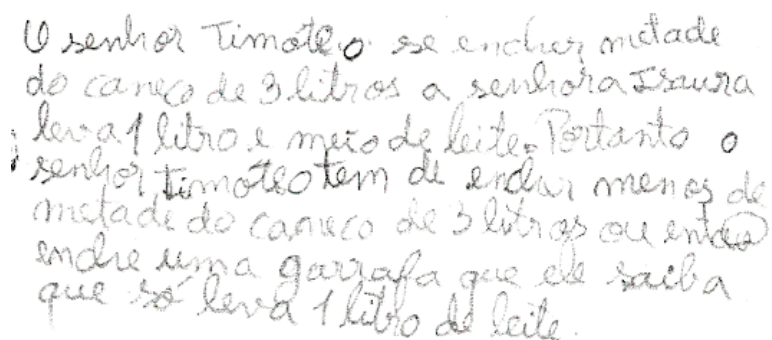 O senhor Timóteo se encher metade
do caneco de 3 litros a senhora Isaura
leva 1 litro e meio de leite. Portanto o
senhor Timóteo tem de encher menos de
metade do caneco de 3 litros ou então
enche uma garrafa que ele saiba
que só leva 1 litro de leite.